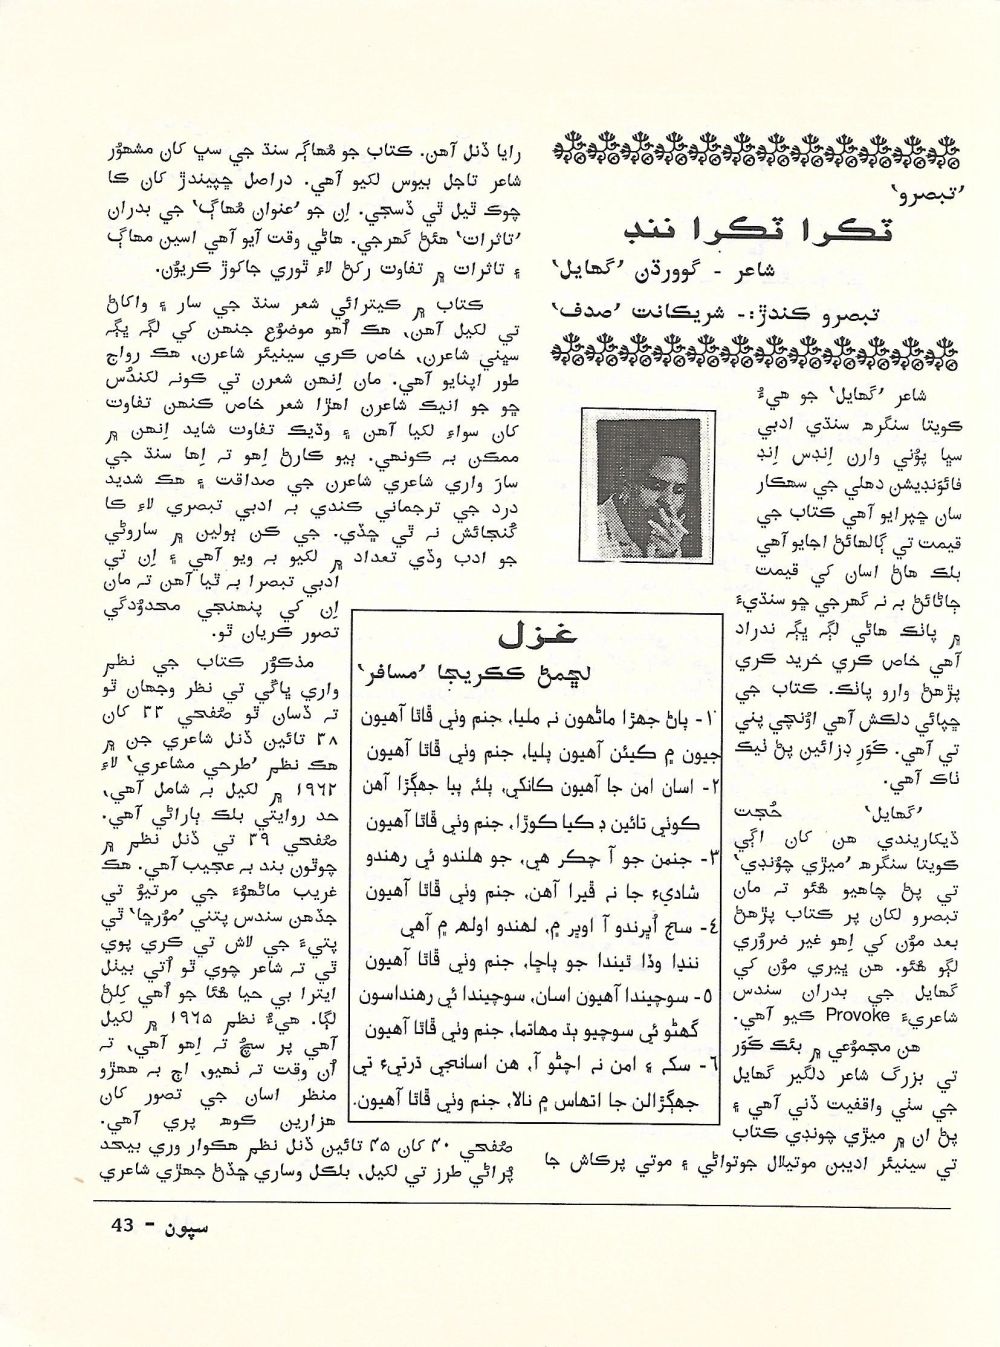 ’تبصرو‘
ٽڪرا ٽڪرا ننڊ
شاعر - گووردڌن ’گهايل‘
تبصرو ڪندڙ:- شريڪانت ’صدف‘
شاعر ’گهايل‘ جو هيءُ
ڪويتا سنگرهہ سنڌي ادبي
سڀا پوُني وارن اِنڊس اِنڊ
فائونڊيشن دهلي جي سهڪار
سان ڇپرايو آهي ڪتاب جي
قيمت تي ڳالهائڻ اجايو آهي
بلڪ هاڻ اسان کي قيمت
ڄاڻائڻ بہ نہ گهرجي ڇو سنڌيءَ
۾ پاٺڪ هاڻي لڳہ ڀڳہ ندراد
آهي خاص ڪري خريد ڪري
پڙهڻ وارو پاٺڪ. ڪتاب جي
ڇپائي دلڪش آهي اوُنچي پني
تي آهي. ڪَورِ ڊزائين پڻ ٺيڪ
ٺاڪ آهي.
’گهايل‘ حُجت
ڏيکاريندي هن کان اڳي
ڪويتا سنگرهہ ’ميڙي چوُنڊي‘
تي پڻ چاهيو هُئو تہ مان
تبصرو لکان پر ڪتاب پڙهڻ
بعد موُن کي اِهو غير ضروُري
لڳو هُئو. هن ڀيري موُن کي
گهايل جي بدران سندس
شاعريءَ Provoke ڪيو آهي.
هن مجموُعي ۾ بئڪ ڪَوَر
تي بزرگ شاعر دلگير گهايل
جي سٺي واقفيت ڏني آهي ۽
پڻ ان ۾ ميڙي چونڊي ڪتاب
تي سينيئر اديبن موتيلال جوتواڻي ۽ موتي پرڪاش جا
رايا ڏنل آهن. ڪتاب جو مُهاڳہ سنڌ جي سڀ کان مشهوُر
شاعر تاجل بيوس لکيو آهي. دراصل ڇپيندڙ کان ڪا
چوڪ ٿيل ٿي ڏسجي. اِن جو ’عنوان مُهاڳ‘ جي بدران
’تاثرات‘ هئڻ گهرجي. هاڻي وقت آيو آهي اسين مهاڳ
۽ تاثرات ۾ تفاوت رکڻ لاءِ ٿوري جاکوڙ ڪريوُن.
ڪتاب ۾ ڪيترائي شعر سنڌ جي سار ۽ واکاڻ
تي لکيل آهن، هڪ اُهو موضوُع جنهن کي لڳہ ڀڳہ
سڀني شاعرن، خاص ڪري سينيئر شاعرن، هڪ رواج
طور اپنايو آهي. مان اِنهن شعرن تي ڪونہ لکندُس
ڇو جو انيڪ شاعرن اهڙا شعر خاص ڪنهن تفاوت
کان سواءِ لکيا آهن ۽ وڌيڪ تفاوت شايد اِنهن ۾
ممڪن بہ ڪونهي. ٻيو ڪارڻ اِهو تہ اِها سنڌ جي
سارَ واري شاعري شاعرن جي صداقت ۽ هڪ شديد
درد جي ترجماني ڪندي بہ ادبي تبصري لاءِ ڪا
گُنجائش نہ ٿي ڇڏي. جي ڪن ٻولين ۾ ساروڻي
جو ادب وڏي تعداد ۾ لکيو بہ ويو آهي ۽ اِن تي
ادبي تبصرا بہ ٿيا آهن تہ مان
اِن کي پنهنجي محدوُدگي
تصور ڪريان ٿو.
مذڪوُر ڪتاب جي نظم
واري ڀاڱي تي نظر وجهان ٿو
تہ ڏسان ٿو صُفحي ۲۳ کان
۳۸ تائين ڏنل شاعري جن ۾
هڪ نظم ’طرحي مشاعري‘ لاءِ
۱۹۶۲ ۾ لکيل بہ شامل آهي،
حد روايتي بلڪ ٻاراڻي آهي.
صُفحي ۳۹ تي ڏنل نظم ۾
چوٿون بند بہ عجيب آهي. هڪ
غريب ماڻهوُءَ جي مرتيوُ تي
جڏهن سندس پتني ’موُرڇا‘ ٿي
پتيءَ جي لاش تي ڪري پوي
ٿي تہ شاعر چوي ٿو اُتي بيٺل
ايترا بي حيا هُئا جو اُهي کِلڻ
لڳا. هيءُ نظم ۱۹۶۵ ۾ لکيل
آهي پر سچُ تہ اِهو آهي، تہ
اُن وقت تہ نهيو، اڄ بہ ههڙو
منظر اسان جي تصور کان
هزارين ڪوهہ پري آهي.
صُفحي ۴۰ کان ۴۵ تائين ڏنل نظم هڪوار وري بيحد
پُراڻي طرز تي لکيل، بلڪل وساري ڇڏڻ جهڙي شاعري
غزل
لڇمڻ ڪڪريجا ’مسافر‘
١- پاڻ جهڙا ماڻهون نہ مليا، جنم وٺي ڦاٿا آهيون
جيون ۾ ڪيئن آهيون پليا، جنم وٺي ڦاٿا آهيون
٢- اسان امن جا آهيون کانکي، پلئہ پيا جهڳڙا آهن
ڪوٺي تائين ڊ کيا ڪوڙا، جنم وٺي ڦاٿا آهيون
٣- جنمن جو آ چڪر هي، جو هلندو ئي رهندو
شاديءَ جا نہ ڦيرا آهن، جنم وٺي ڦاٿا آهيون
٤- سج اُڀرندو آ اوڀر ۾، لهندو اولهہ ۾ آهي
ننڍا وڏا ٿيندا جو پاڇا، جنم وٺي ڦاٿا آهيون
٥- سوچيندا آهيون اسان، سوچيندا ئي رهنداسون
گهڻو ئي سوچيو ٻڌ مهاتما، جنم وٺي ڦاٿا آهيون
٦- سک ۽ امن نہ اچڻو آ، هن اسانجي ڌرتيءَ تي
جهڳڙالن جا اتهاس ۾ نالا، جنم وٺي ڦاٿا آهيون.
سپون - 43